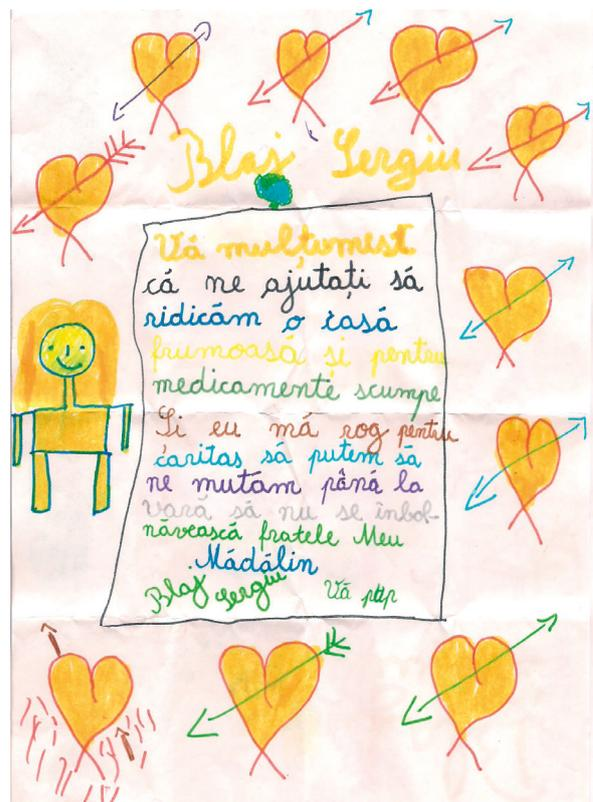 Blaj Sergiu
Vă mulțumesc
că ne ajutați să
ridicăm o casă
frumoasă și pentru
medicamente scumpe
Și eu mă rog pentru
caritas să putem să
ne mutăm până la
vară să nu se înbol-
năvească fratele Meu
Mădălin
Blaj Sergiu Vă pup